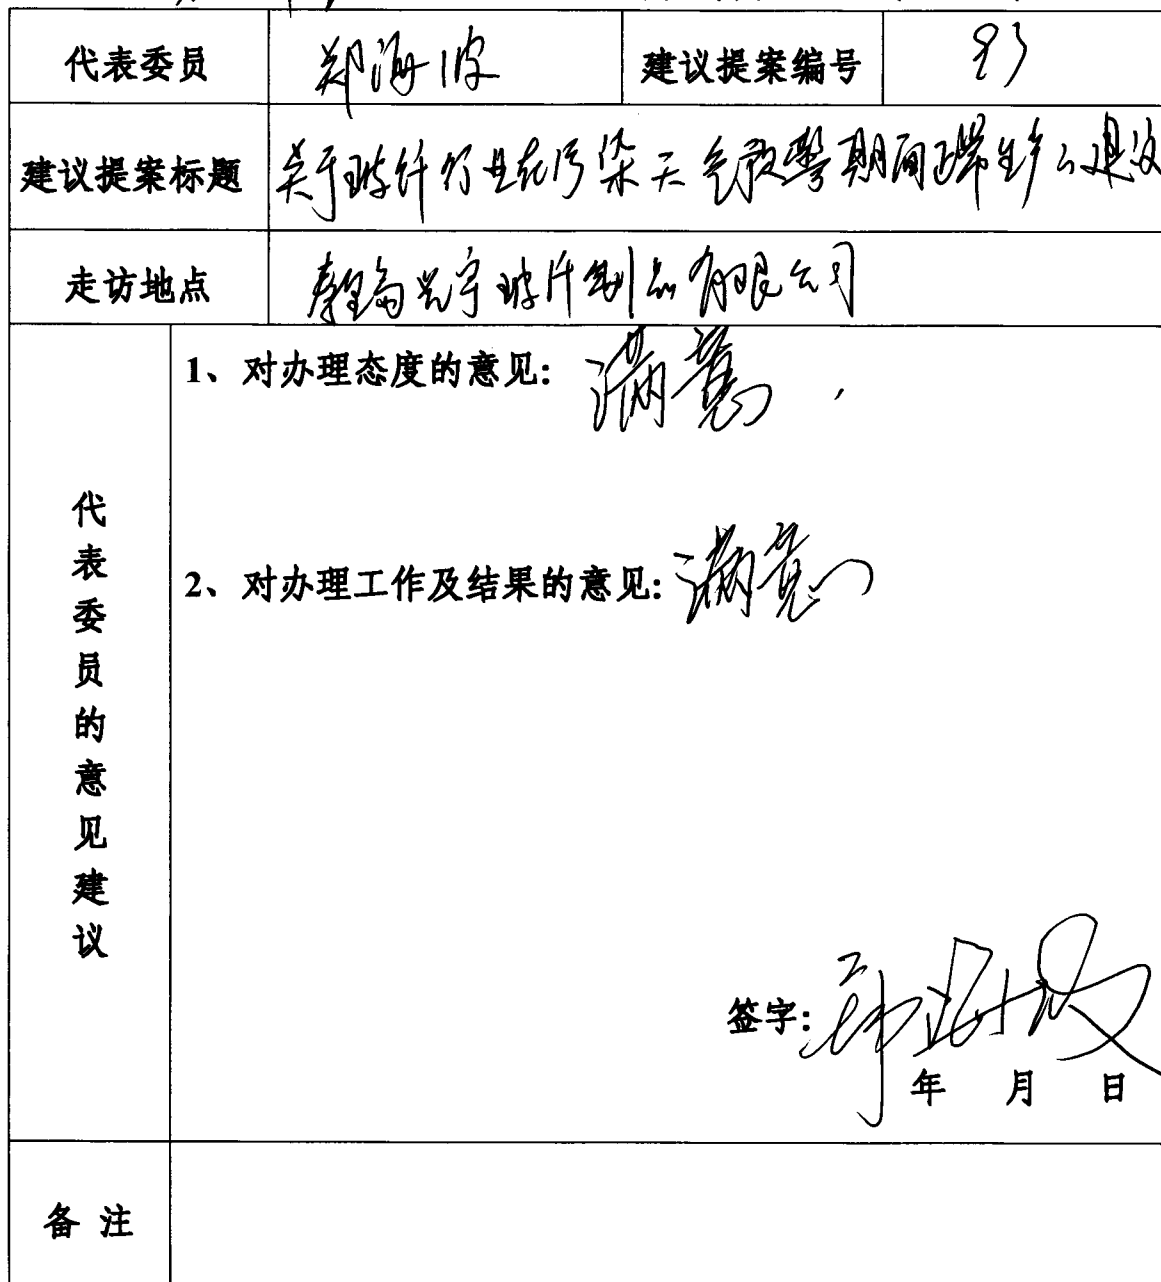 代表委员 郑海波 建议提案编号 83
建议提案标题 关于玻纤行业在污染天气预警期间正常生产的建议
走访地点 秦皇岛兴宇玻纤制品有限公司
1、对办理态度的意见: 满意
2、对办理工作及结果的意见: 满意
代表委员的意见建议
签字: 郑海波
年 月 日
备 注